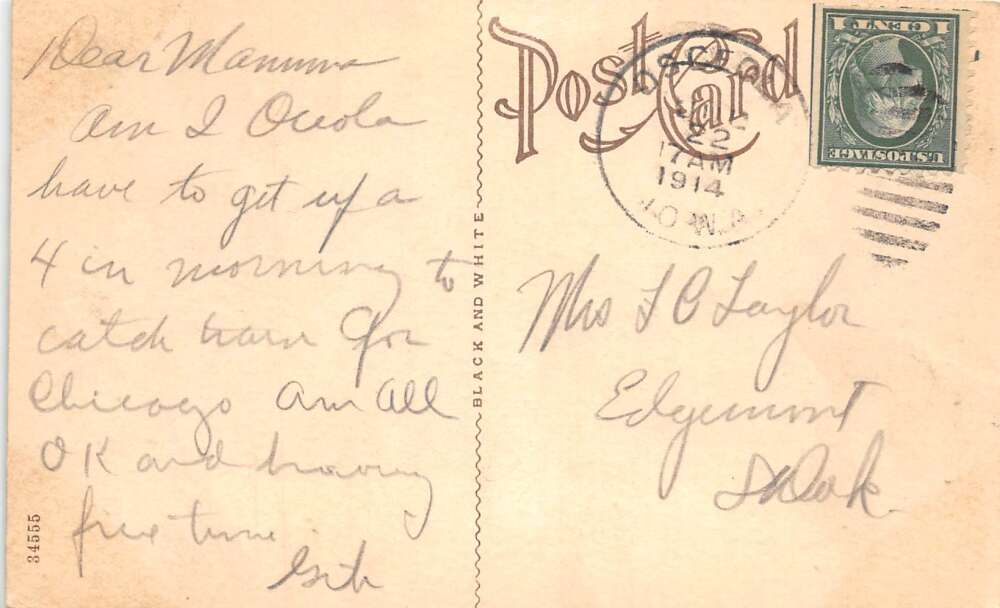 Dear Mamma
Am I Oceola
have to get up a
4 in morning to
catch train for
Chicago Am All
OK and having
fine time
34555
BLACK AND WHITE
Post Card
OSCEOLA
22
17AM
1914
IOWA
1 CENT 1
U.S. POSTAGE
Mrs F C Taylor
Edgemont
S Dak.